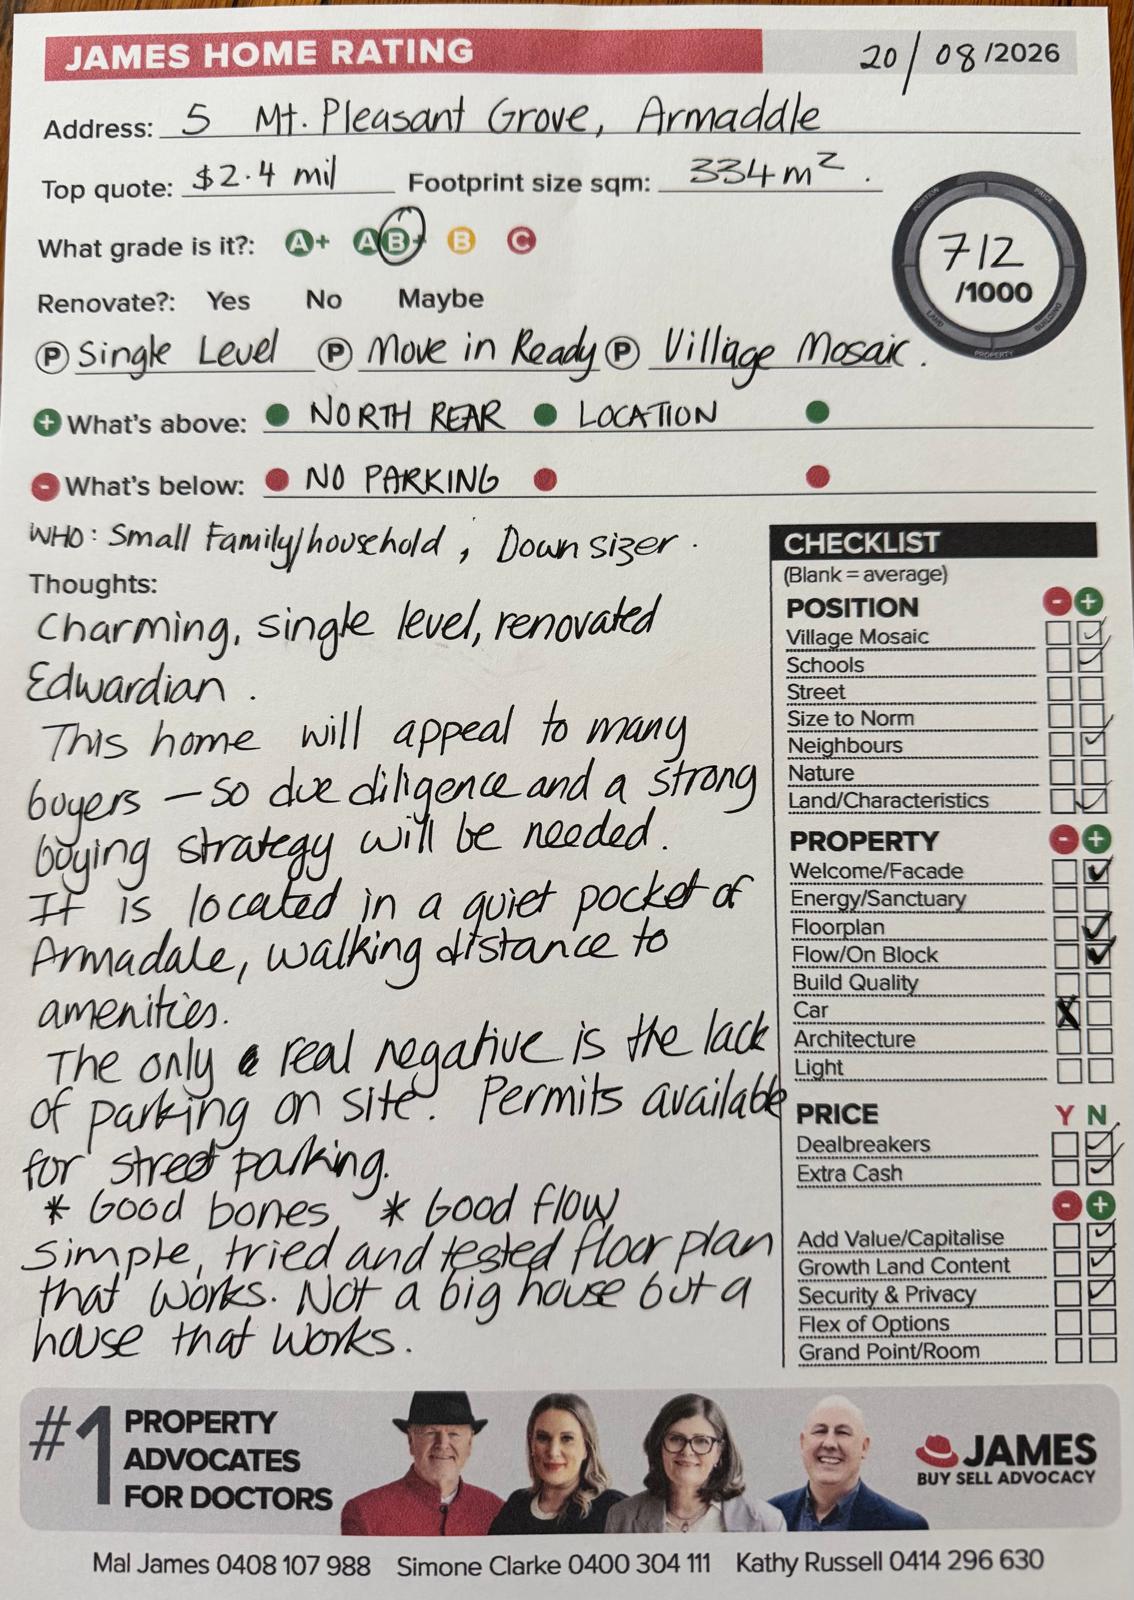 JAMES HOME RATING
20/08/2026
Address: 5 Mt. Pleasant Grove, Armaddle
Top quote: $2.4 mil Footprint size sqm: 334m².
What grade is it?: A+ AB+ B C
POSITION PRICE LAND BUILDING PROPERTY
712
/1000
Renovate?: Yes No Maybe
P Single Level P Move in Ready P Village Mosaic.
+ What's above: NORTH REAR LOCATION
- What's below: NO PARKING
WHO: Small Family/household, Downsizer.
Thoughts:
Charming, single level, renovated
Edwardian.
This home will appeal to many
buyers — so due diligence and a strong
buying strategy will be needed.
It is located in a quiet pocket of
Armadale, walking distance to
amenities.
The only real negative is the lack
of parking on site. Permits available
for street parking.
* Good bones * Good flow
Simple, tried and tested floor plan
that works. Not a big house but a
house that works.
CHECKLIST
(Blank = average)
POSITION - +
Village Mosaic
Schools
Street
Size to Norm
Neighbours
Nature
Land/Characteristics
PROPERTY - +
Welcome/Facade
Energy/Sanctuary
Floorplan
Flow/On Block
Build Quality
Car X
Architecture
Light
PRICE Y N
Dealbreakers
Extra Cash
- +
Add Value/Capitalise
Growth Land Content
Security & Privacy
Flex of Options
Grand Point/Room
#1 PROPERTY
ADVOCATES
FOR DOCTORS
JAMES
BUY SELL ADVOCACY
Mal James 0408 107 988 Simone Clarke 0400 304 111 Kathy Russell 0414 296 630